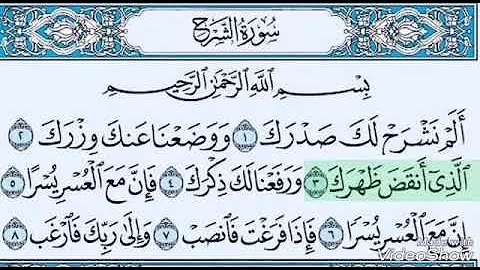 سُورَةُ الشَّرْحِ
بِسْمِ اللَّهِ الرَّحْمَٰنِ الرَّحِيمِ
أَلَمْ نَشْرَحْ لَكَ صَدْرَكَ ١ وَوَضَعْنَا عَنكَ وِزْرَكَ ٢
الَّذِي أَنقَضَ ظَهْرَكَ ٣ وَرَفَعْنَا لَكَ ذِكْرَكَ ٤ فَإِنَّ مَعَ الْعُسْرِ يُسْرًا ٥
إِنَّ مَعَ الْعُسْرِ يُسْرًا ٦ فَإِذَا فَرَغْتَ فَانصَبْ ٧ وَإِلَىٰ رَبِّكَ فَارْغَب ٨
Made with
VideoShow